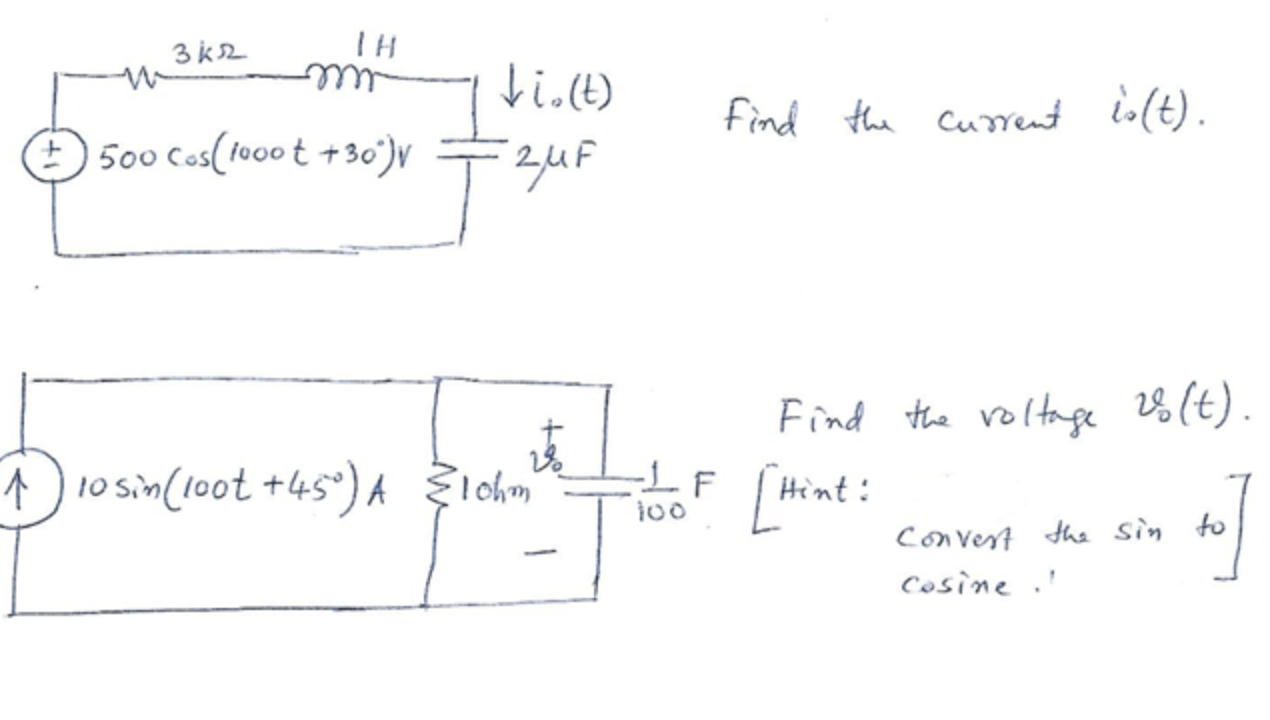 3 kΩ
1 H
↓ i₀(t)
500 cos(1000 t + 30°) V
2 μF
Find the current i₀(t).
10 sin(100t + 45°) A
1 ohm
+
v₀
−
1/100 F
Find the voltage v₀(t).
[Hint:
Convert the sin to
cosine.]